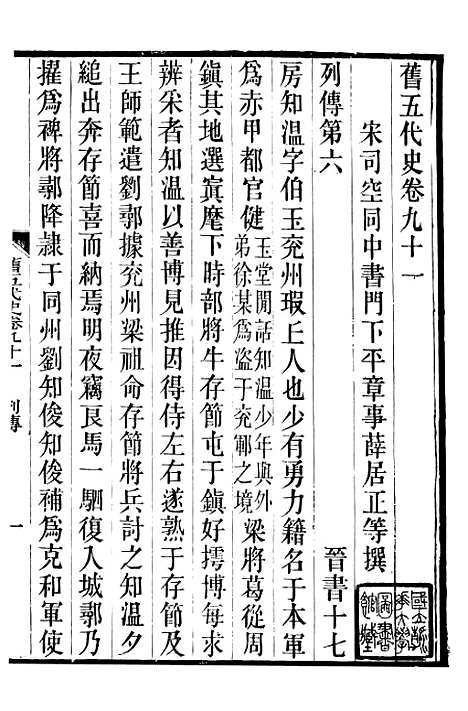 舊五代史卷九十一
宋司空同中書門下平章事薛居正等撰
列傳第六　晉書十七
房知溫字伯玉兗州瑕丘人也少有勇力籍名于本軍
為赤甲都官健
玉堂閒話知溫少年與外
弟徐某為盜于兗鄆之境
梁將葛從周
鎮其地選寘麾下時部將牛存節屯于鎮好摴博每求
辨采者知溫以善博見推因得侍左右遂熟于存節及
王師範遣劉鄩據兗州梁祖命存節將兵討之知溫夕
縋出奔存節喜而納焉明夜竊良馬一駟復入城鄩乃
擢為裨將鄩降隷于同州劉知俊知俊補為克和軍使
舊五代史卷九十一　列傳　一